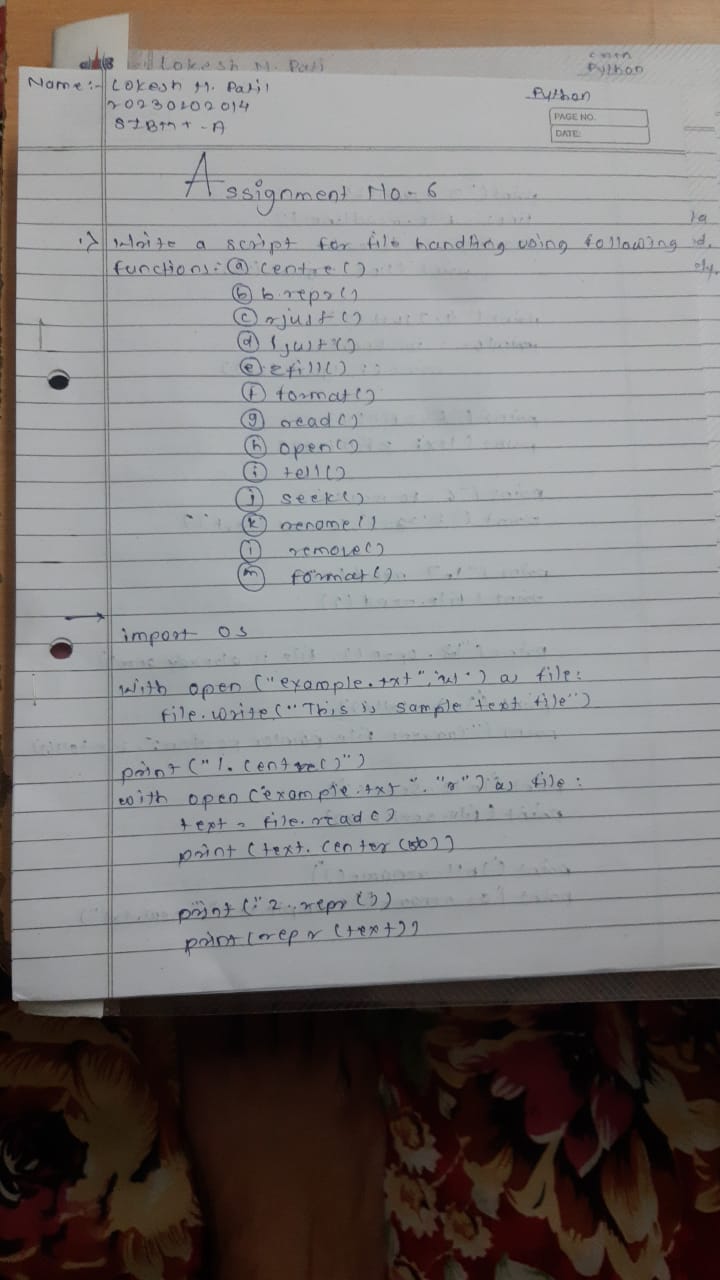 Lokesh M. Pati
Python
Name:- Lokesh M. Patil
20230102014
Python
PAGE NO.
DATE:
Assignment No-6
1) Write a script for file handling using following
functions: (a) centre()
(b) b.repr()
(c) rjust()
(d) ljust()
(e) zfill()
(f) format()
(g) read()
(h) open()
(i) tell()
(j) seek()
(k) rename()
(l) remove()
(m) format().
import os
with open ("example.txt", "w") as file:
file.write("This is sample text file")
print ("1. centre()")
with open ("example.txt", "r") as file:
text = file.read()
print (text.center(50))
print ("2. repr())
print (repr (text))